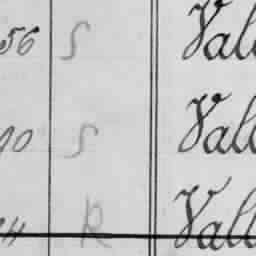 56 S Val
90 S Val
R Vall